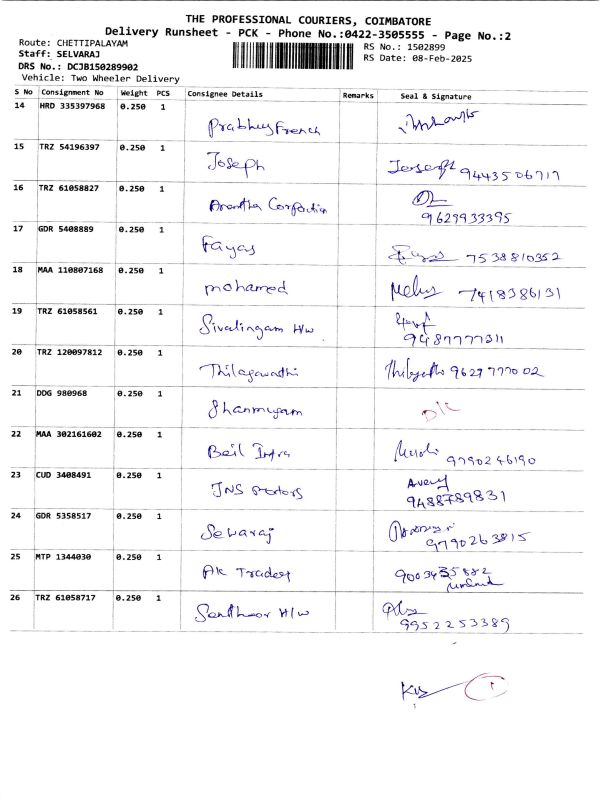 THE PROFESSIONAL COURIERS, COIMBATORE
Delivery Runsheet - PCK - Phone No.:0422-3505555 - Page No.:2
Route: CHETTIPALAYAM
Staff: SELVARAJ
DRS No.: DCJB150289902
Vehicle: Two Wheeler Delivery
RS No.: 1502899
RS Date: 08-Feb-2025
S No Consignment No Weight PCS Consignee Details Remarks Seal & Signature
14 HRD 335397968 0.250 1
Prabhu French
15 TRZ 54196397 0.250 1
Joseph Joseph 9443506717
16 TRZ 61058827 0.250 1
9629933395
17 GDR 5408889 0.250 1
Fayas 7538810352
18 MAA 110807168 0.250 1
mohamed 7418386131
19 TRZ 61058561 0.250 1
Sivalingam H/w
9487777311
20 TRZ 120097812 0.250 1
Thilagavathi 9629777002
21 DDG 980968 0.250 1
Shanmugam D/L
22 MAA 302161602 0.250 1
Beil Infra 9790246190
23 CUD 3408491 0.250 1
JNS Motors
9488789831
24 GDR 5358517 0.250 1
Selvaraj
9790263815
25 MTP 1344030 0.250 1
AK Traders 9003435882
26 TRZ 61058717 0.250 1
Senthoor H/w
9952253389